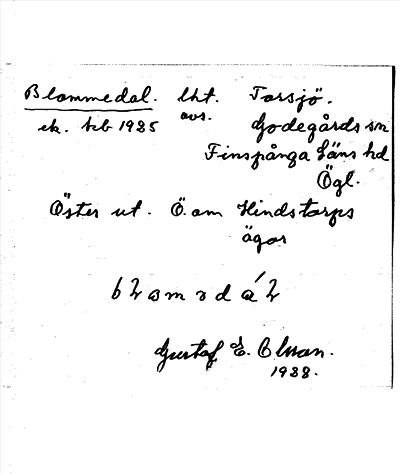 Blommedal. lht. Torsjö.
ek. kb 1925 avs. Godegårds sn
Finspånga läns hd
Ögl.
Öster ut. Ö. om Hindstorps
ägor
Gustaf E. Olsson.
1933.